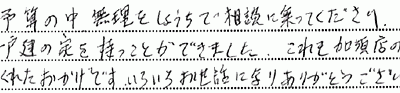 予算の中 無理をしょうちで相談に乗ってくださり、
戸建の家を持つことができました。これも加須店の
くれたおかげです。いろいろお世話になりありがとうござい